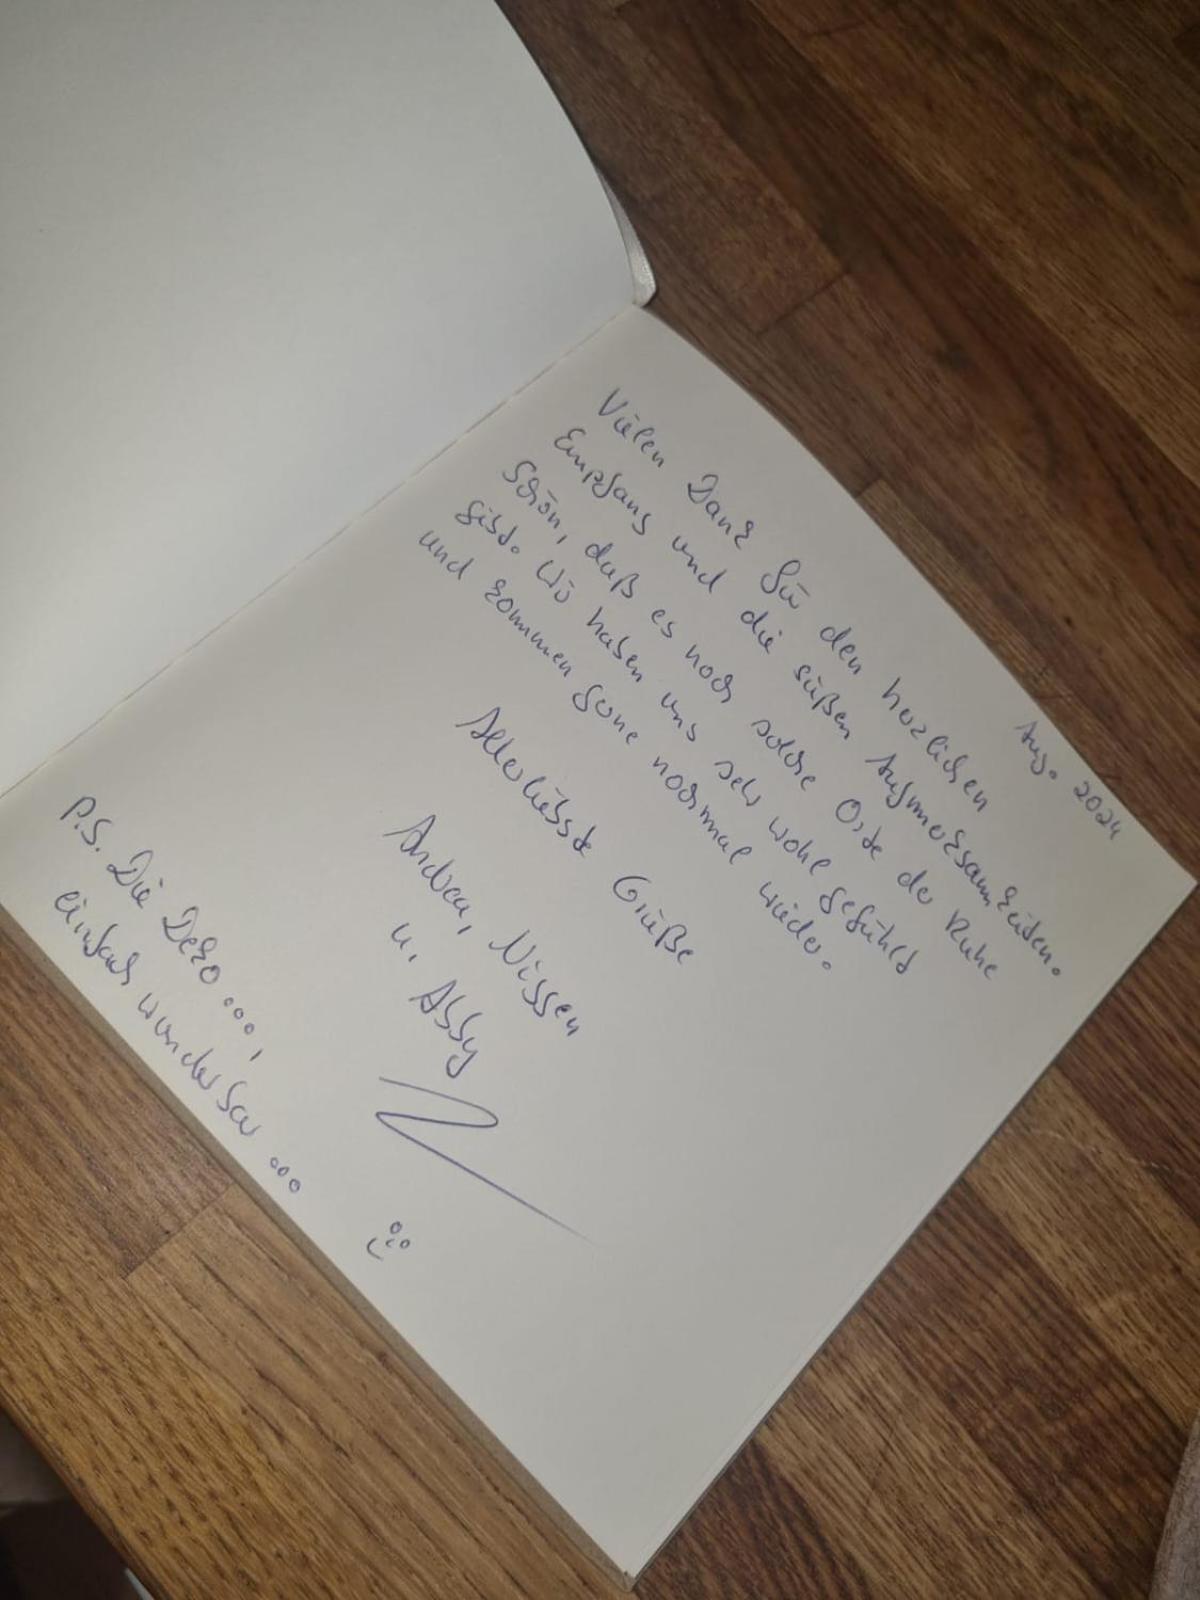 Aug. 2024
Vielen Dank für den herzlichen
Empfang und die süßen Aufmerksamkeiten.
Schön, daß es noch solche Orte der Ruhe
gibt. Wir haben uns sehr wohl gefühlt
und kommen gerne nochmal wieder.
Allerliebste Grüße
Andrea, Nissen
u. Abby
P.S. Die Deko ...,
einfach wunderbar ...